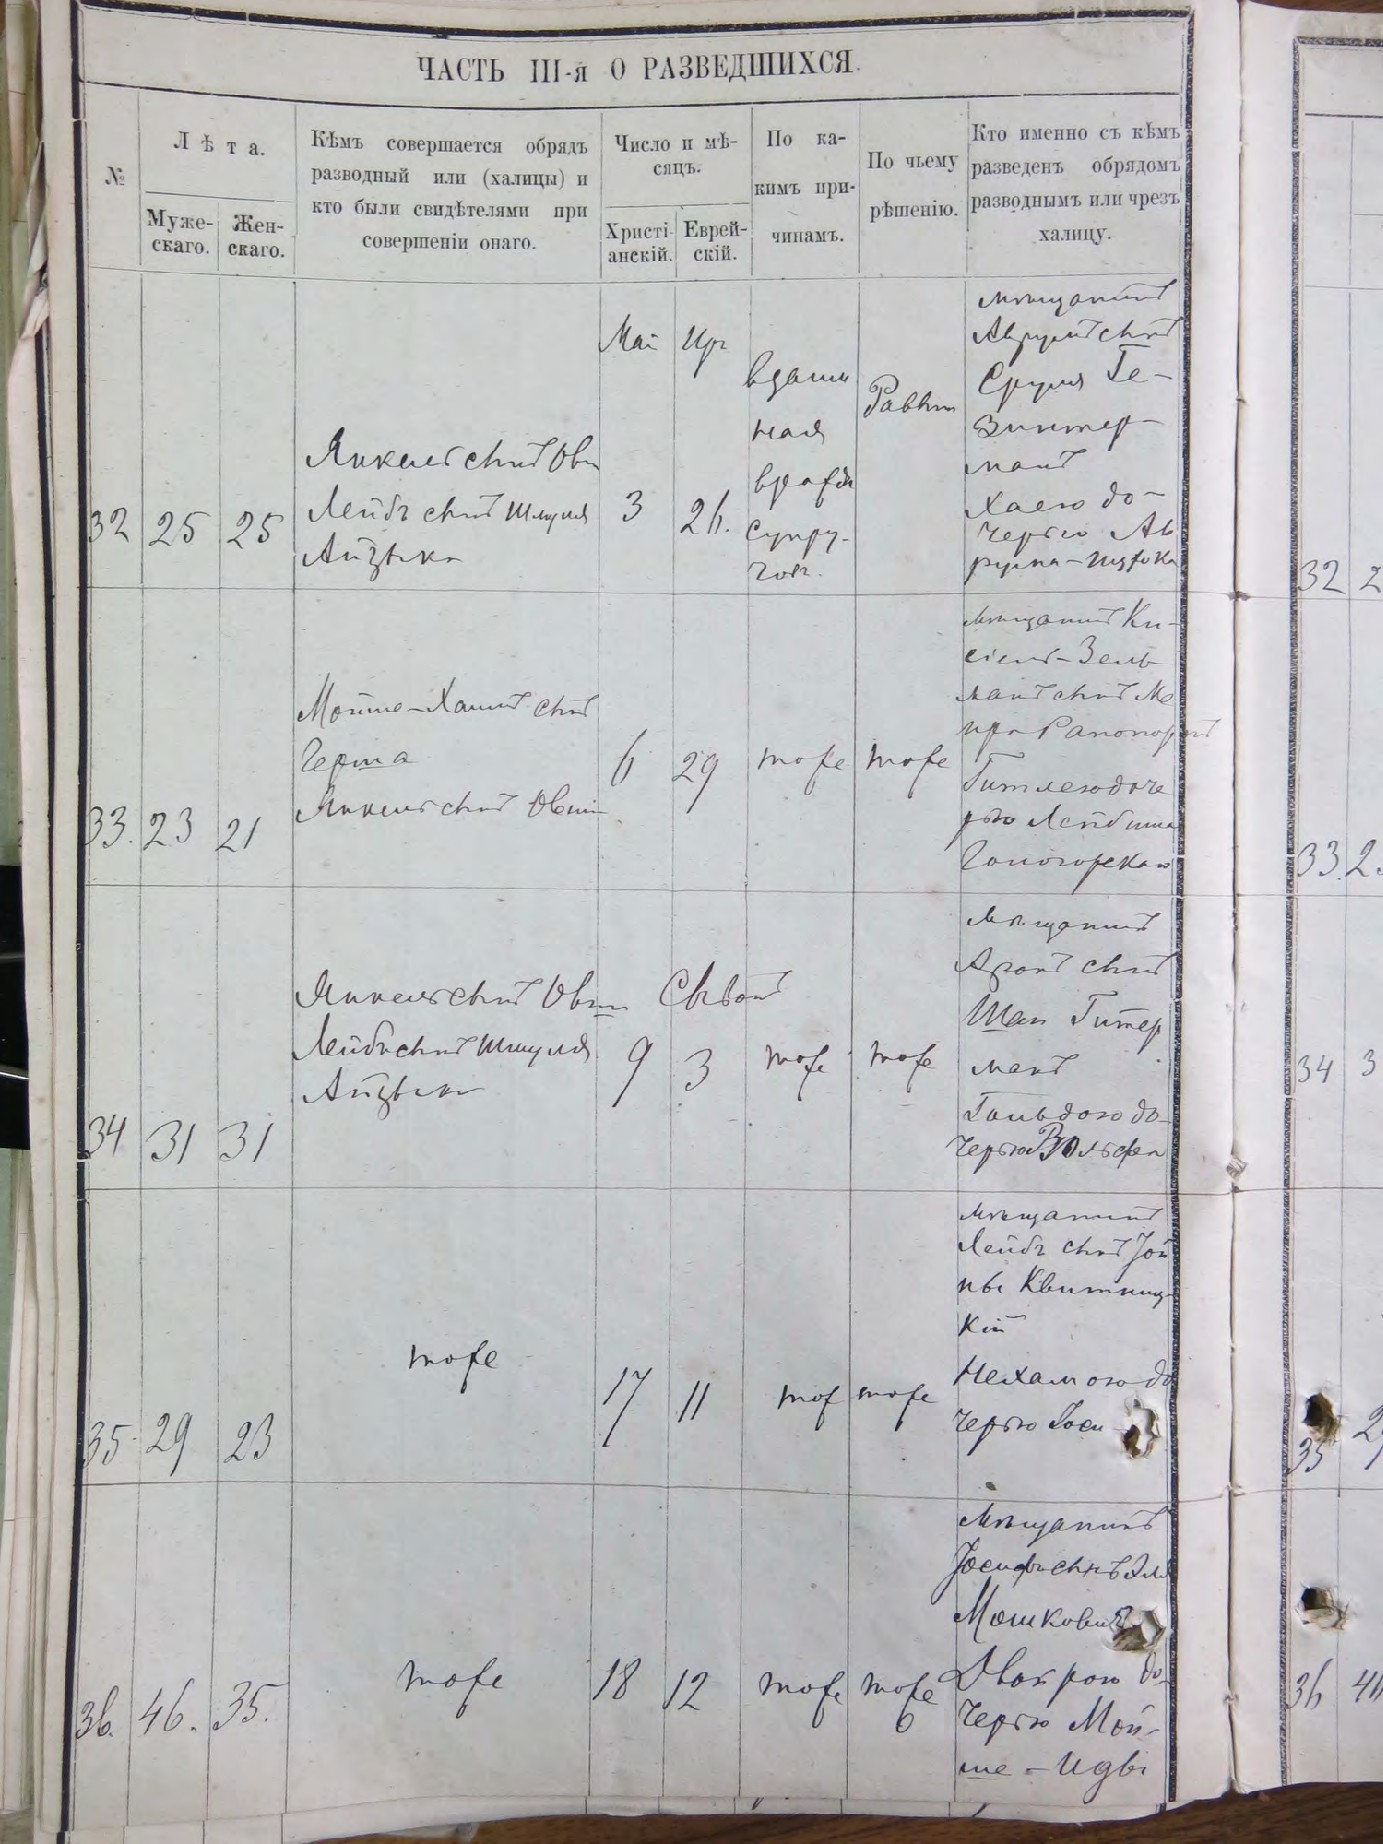 ЧАСТЬ III-я О РАЗВЕДШИХСЯ.
№
Лѣта.
Муже-
скаго.
Жен-
скаго.
Кѣмъ совершается обрядъ
разводный или (халицы) и
кто были свидѣтелями при
совершеніи онаго.
Число и мѣ-
сяцъ.
Христі-
анскій.
Еврей-
скій.
По ка-
кимъ при-
чинамъ.
По чьему
рѣшенію.
Кто именно съ кѣмъ
разведенъ обрядомъ
разводнымъ или чрезъ
халицу.
32
25
25
Янкель сынъ
Лейбъ сынъ Шмуля
Айзыкъ
Май
3
Иръ
26.
взаим
ная
вражда
супру-
говъ.
Раввин
мѣщанинъ
Аврумъ сынъ
Сруля Ге-
зинтер-
манъ
Хаею до-
черью Ав
рума-Ицхока
33.
23
21
Мойше-Хаимъ сынъ
Герша
Янкель сынъ Овши
6
29
тоже
тоже
мѣщанинъ Ки-
сіель-Зель
манъ сынъ Ме
ира Рапопортъ
Гитлею доче
рью Лейбиша
34
31
31
Янкель сынъ
Лейбъ сынъ Шмуля
Айзыкъ
9
Сывонъ
3
тоже
тоже
мѣщанинъ
Аронъ сынъ
Шаи Гитер
манъ
Гольдою до-
черью Вольфа
35
29
23
тоже
17
11
тож
тоже
мѣщанинъ
Лейбъ сынъ Іой
ны Квитниц-
кій
Нехамою до
черью Іоси
36.
46.
35.
тоже
18
12
тоже
тоже
Мѣщанинъ
Іосифъ сынъ
Мошковичъ
Двойрою до-
черью Мой-
ше-Иды
32
2
33
2
34
3
35
2
36
46